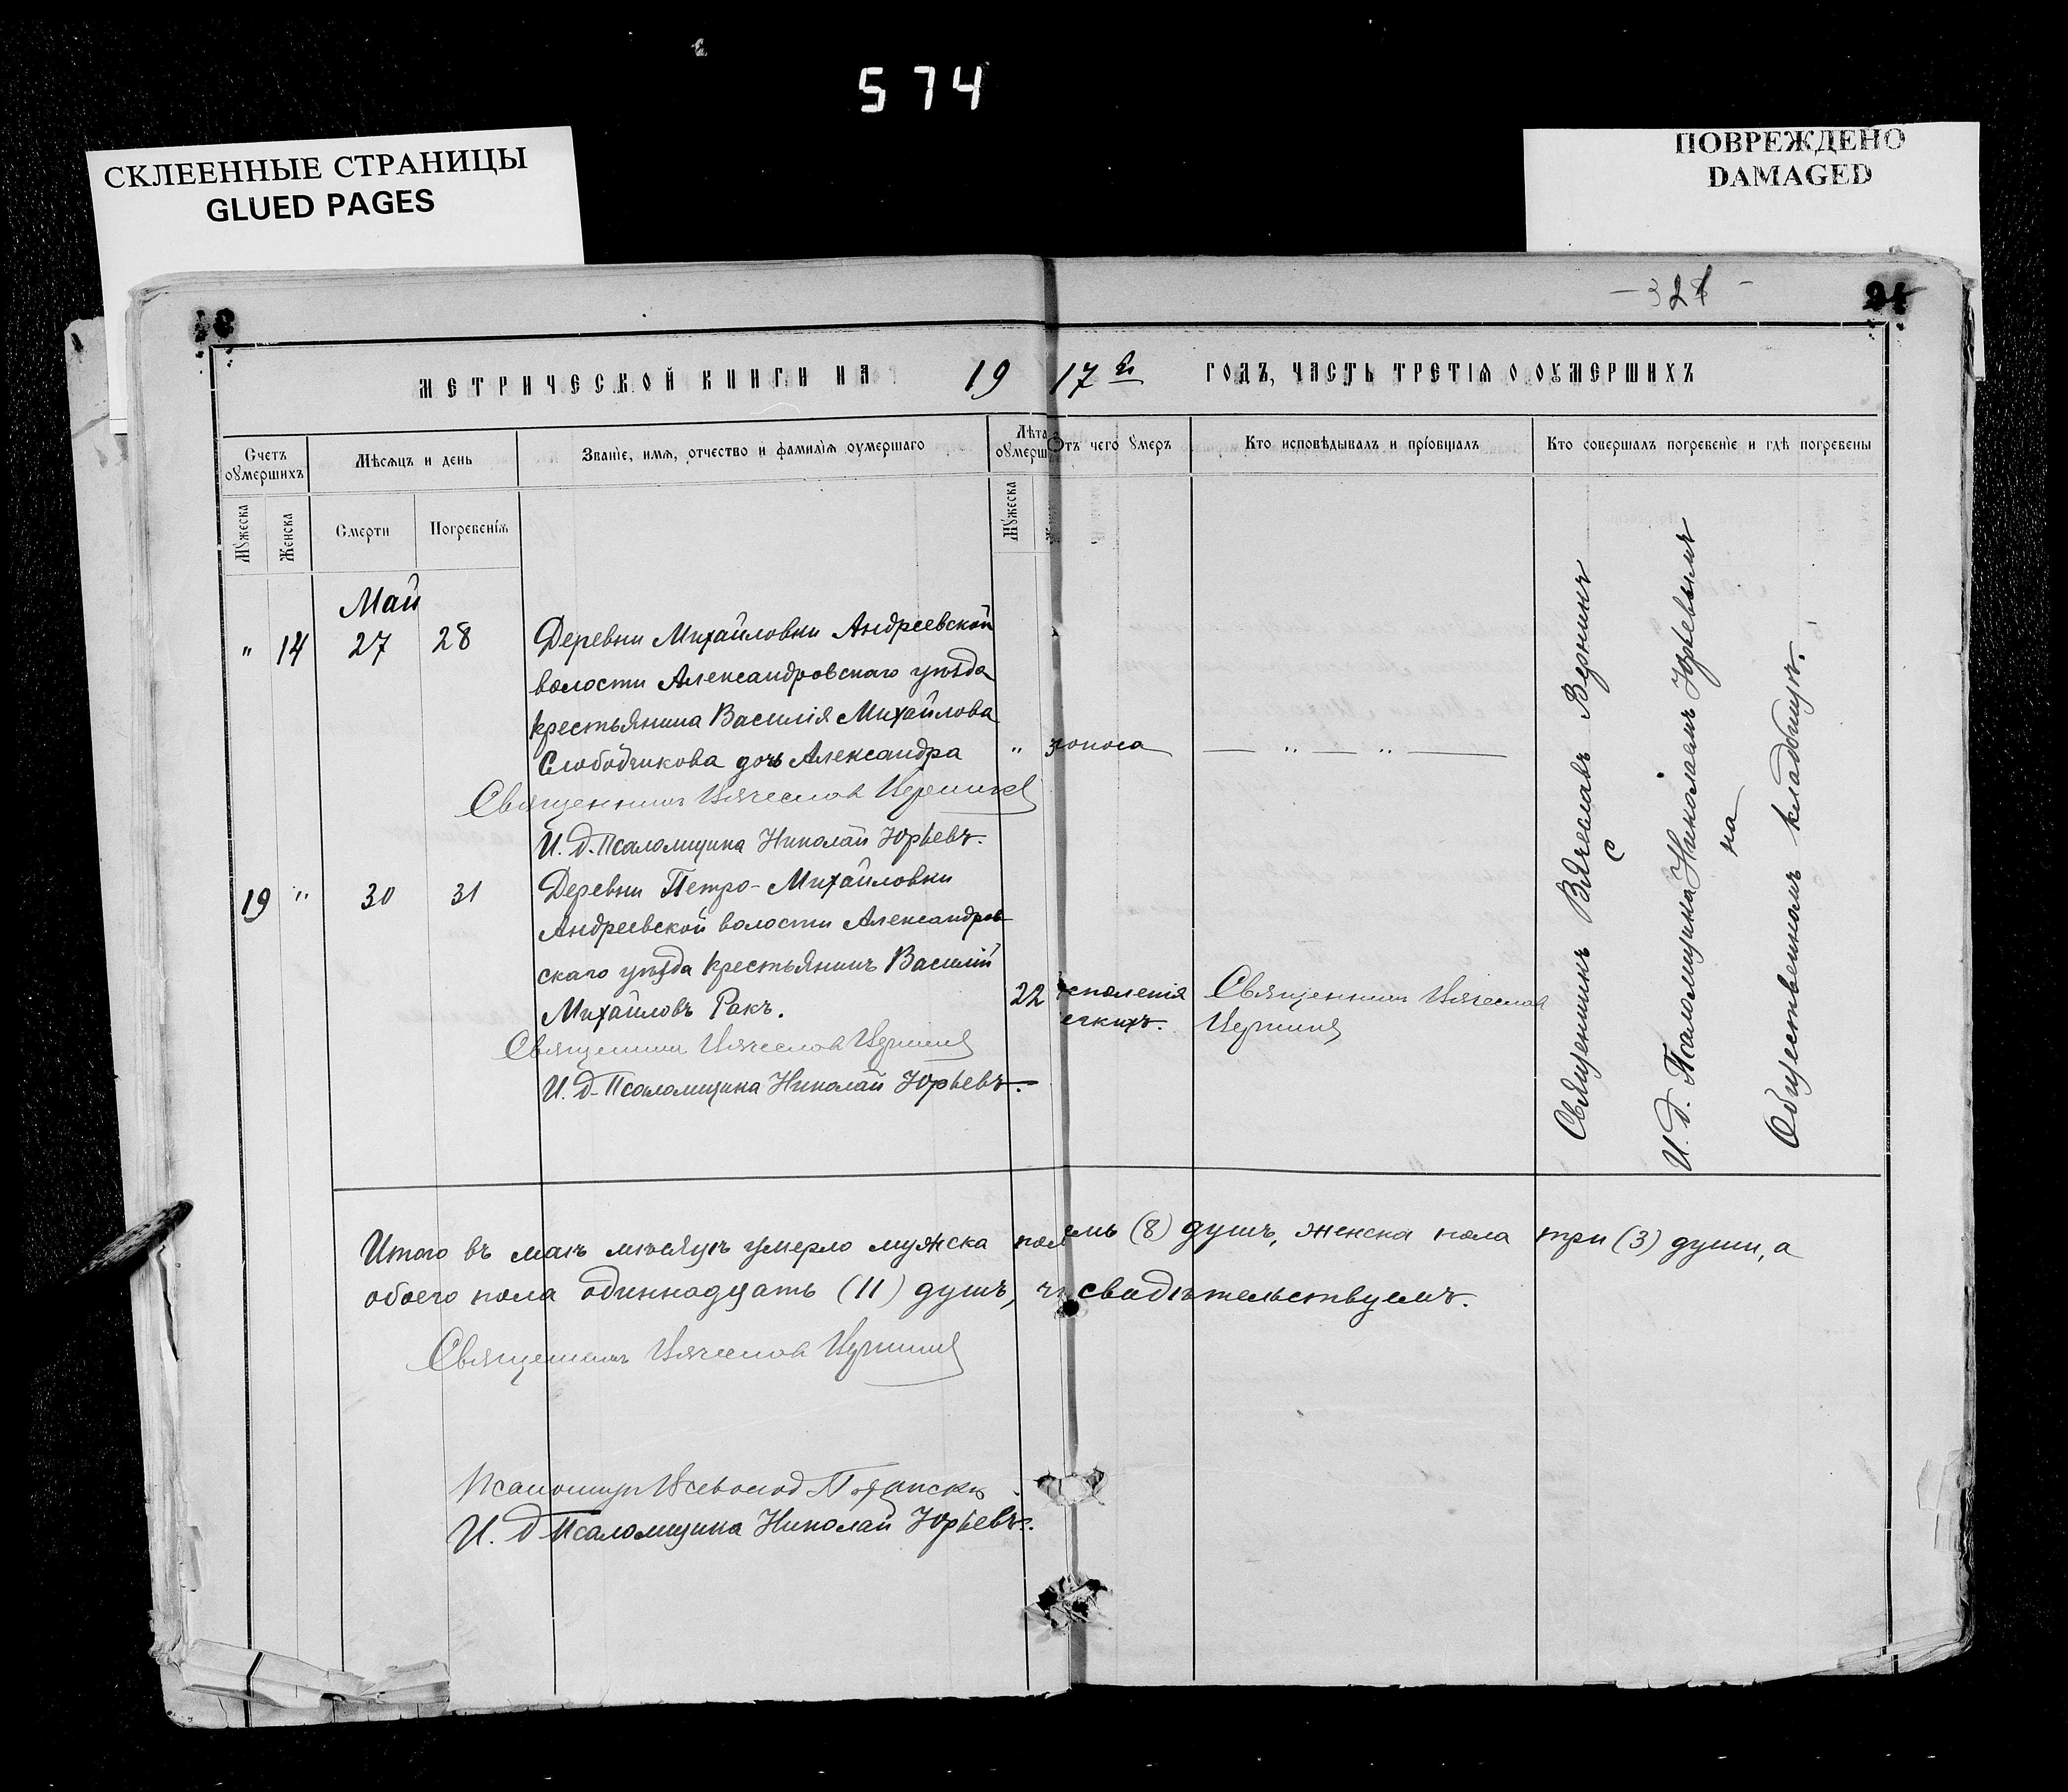 574
СКЛЕЕННЫЕ СТРАНИЦЫ
GLUED PAGES
ПОВРЕЖДЕНО
DAMAGED
МЕТРИЧЕСКОЙ КНИГИ НА 1917й ГОДЪ, ЧАСТЬ ТРЕТІЯ О ОУМЕРШИХЪ
Счетъ оумершихъ
Мѣсяцъ и день
Званіе, имя, отчество и фамилія оумершаго
Лѣта оумерш
Отъ чего умеръ
Кто исповѣдывалъ и пріобщалъ
Кто совершалъ погребеніе и гдѣ погребены
Мужеска
Женска
Смерти
Погребенія
Мужеска
Май
" 14 27 28 Деревни Михайловки Андреевской
волости Александровскаго уѣзда
крестьянина Василія Михайлова
Слободчикова дочь Александра " поноса — " — " —
Священникъ Вячеслав Верниц
И. д. Псаломщика Николай Юрьевъ.
19 " 30 31 Деревни Петро-Михайловки
Андреевской волости Александров
скаго уѣзда крестьянинъ Василій
Михайловъ Ракъ. 22 спаленія Священникъ Вячеслав
егкихъ.
Священникъ Вячеслав
И. д. Псаломщика Николай Юрьевъ.
Священникъ Вячеславъ
с
И. д. Псаломщика Николаемъ Юрьевымъ
на
Общественномъ кладбищѣ.
Итого въ маѣ мѣсяцѣ умерло мужска пол емь (8) душъ, женска пола три (3) души, а
обоего пола одиннадцать (11) душъ, ч свидѣтельствуемъ.
Священникъ Вячеслав
Псаломщик Всеволод
И. д. Псаломщика Николай Юрьевъ.